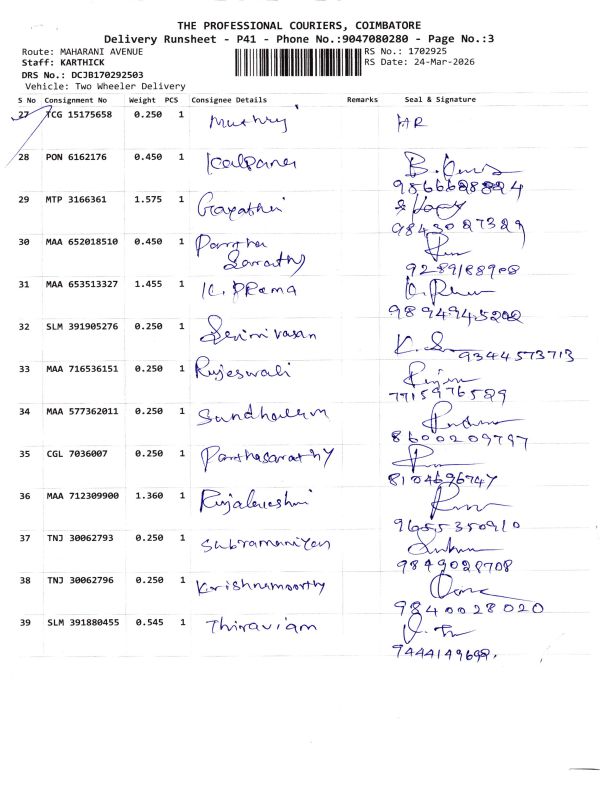 THE PROFESSIONAL COURIERS, COIMBATORE
Delivery Runsheet - P41 - Phone No.:9047080280 - Page No.:3
Route: MAHARANI AVENUE RS No.: 1702925
Staff: KARTHICK RS Date: 24-Mar-2026
DRS No.: DCJB170292503
Vehicle: Two Wheeler Delivery
S No Consignment No Weight PCS Consignee Details Remarks Seal & Signature
27 TCG 15175658 0.250 1
28 PON 6162176 0.450 1 Kalpana
29 MTP 3166361 1.575 1 Gayathri
9843027329
30 MAA 652018510 0.450 1 Partha
Sarathy
31 MAA 653513327 1.455 1 K. PRema
32 SLM 391905276 0.250 1 Srinivasan
9344573713
33 MAA 716536151 0.250 1 Rajeswari
7715976589
34 MAA 577362011 0.250 1
8600209797
35 CGL 7036007 0.250 1 Parthasarathy
36 MAA 712309900 1.360 1 Rajalakshmi
9655350910
37 TNJ 30062793 0.250 1 Subramaniyan
9849028708
38 TNJ 30062796 0.250 1 Krishnamoorthy
9840028020
39 SLM 391880455 0.545 1 Thiraviam